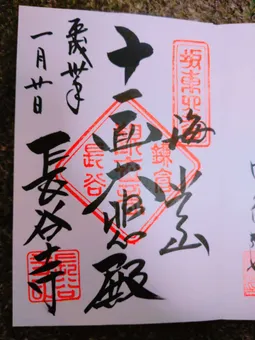 坂東
海光山
十一面大悲殿
鎌倉
長谷
平成卅年
一月廿日
長谷寺